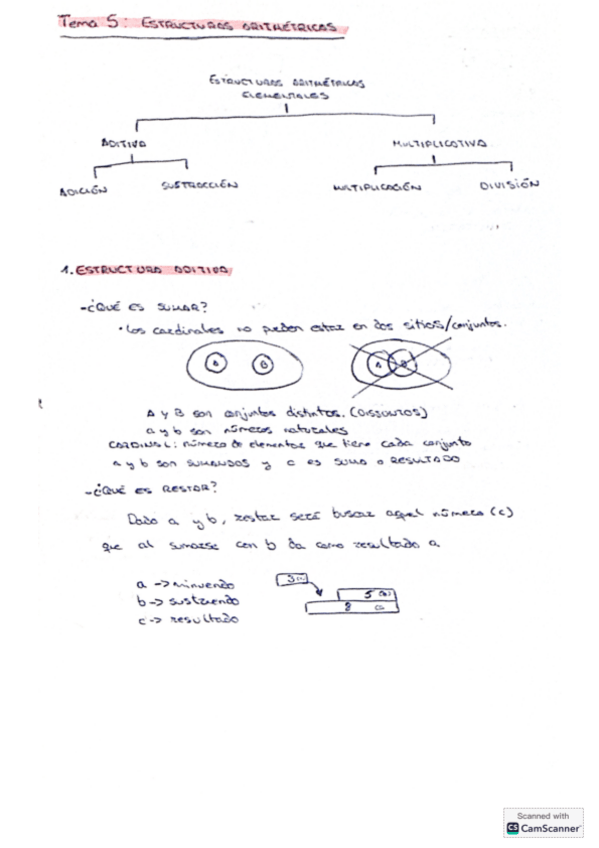 Tema 5: ESTRUCTURAS ARITMÉTRICAS
ESTRUCTURAS ARITMÉTRICAS
ELEMENTALES
ADITIVA MULTIPLICATIVA
ADICIÓN SUSTRACCIÓN MULTIPLICACIÓN DIVISIÓN
1. ESTRUCTURA ADITIVA
-¿QUÉ ES SUMAR?
• Los cardinales no pueden estar en dos sitios/conjuntos.
A B A B
A y B son conjuntos distintos. (DISJUNTOS)
a y b son números naturales
CARDINAL: número de elementos que tiene cada conjunto
a y b son SUMANDOS y c es SUMA o RESULTADO
-¿QUÉ ES RESTAR?
Dado a y b, restar será buscar aquel número (c)
que al sumarse con b da como resultado a.
a -> minuendo
b -> sustraendo
c -> resultado
3
5 (b)
8
Scanned with
CS CamScanner